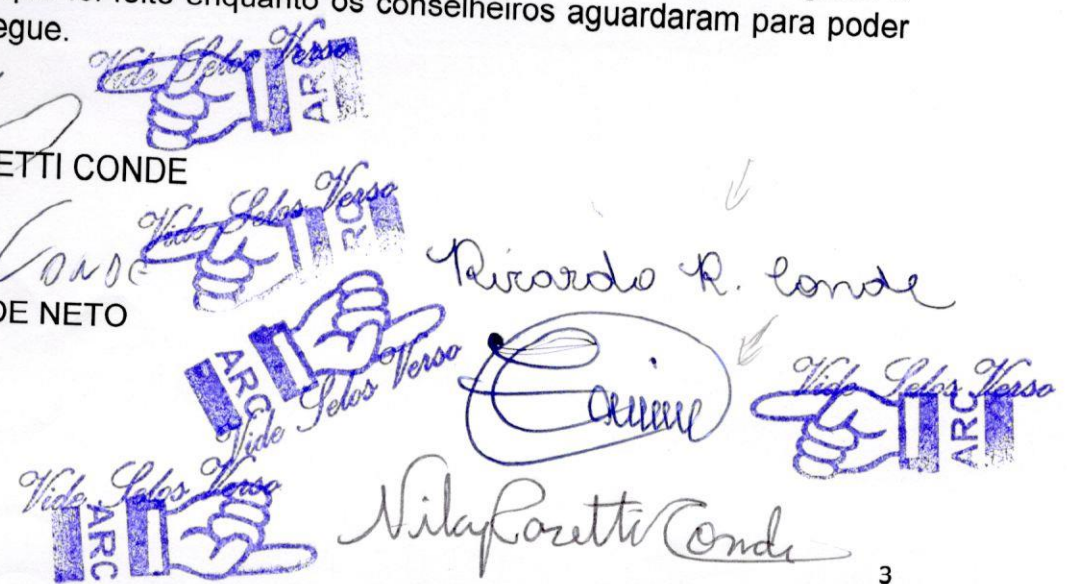 enquanto os conselheiros aguardaram para poder
egue.
Vide Selos Verso
ARC
ETTI CONDE
Vide Selos Verso
ARC
Conde
DE NETO
Ricardo R. Conde
ARC
Vide Selos Verso
Vide Selos Verso
ARC
Vide Selos Verso
ARC
Conde
3